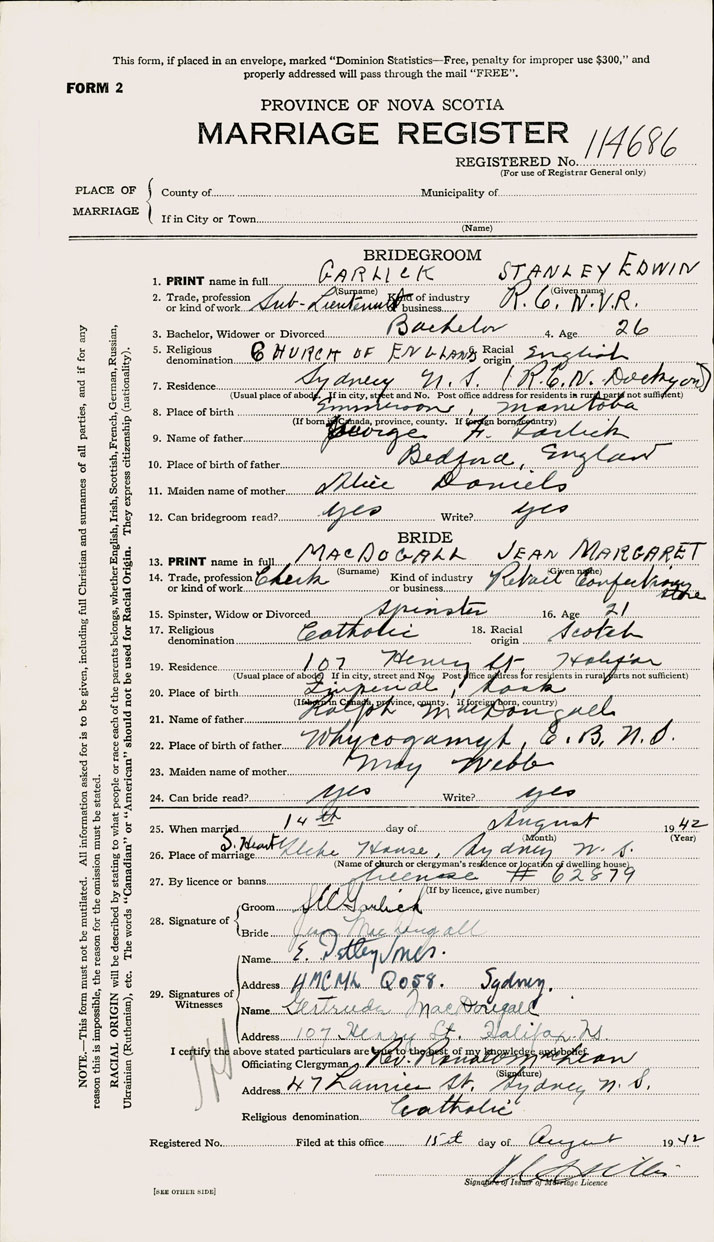 This form, if placed in an envelope, marked "Dominion Statistics—Free, penalty for improper use $300," and
properly addressed will pass through the mail "FREE".
FORM 2
PROVINCE OF NOVA SCOTIA
MARRIAGE REGISTER
REGISTERED No. 114686
(For use of Registrar General only)
PLACE OF MARRIAGE
County of Municipality of
If in City or Town
(Name)
BRIDEGROOM
1. PRINT name in full GARLICK STANLEY EDWIN
(Surname) (Given name)
2. Trade, profession or kind of work Sub-Lieutenant Kind of industry or business R.C.N.V.R.
3. Bachelor, Widower or Divorced Bachelor 4. Age 26
5. Religious denomination CHURCH OF ENGLAND 6. Racial origin English
7. Residence Sydney N.S. (R.C.N. Dockyard)
(Usual place of abode. If in city, street and No. Post office address for residents in rural parts not sufficient)
8. Place of birth Emmerson, Manitoba
(If born in Canada, province, county. If foreign born, country)
9. Name of father George F. Garlick
10. Place of birth of father Bedford, England
11. Maiden name of mother Alice Daniels
12. Can bridegroom read? yes Write? yes
BRIDE
13. PRINT name in full MACDOGALL JEAN MARGARET
(Surname) (Given name)
14. Trade, profession or kind of work Clerk Kind of industry or business Retail Confectionery store
15. Spinster, Widow or Divorced Spinster 16. Age 21
17. Religious denomination Catholic 18. Racial origin Scotch
19. Residence 107 Henry St. Halifax
(Usual place of abode) If in city, street and No. Post office address for residents in rural parts not sufficient)
20. Place of birth Imperial, Sask
(If born in Canada, province, county. If foreign born, country)
21. Name of father Ralph MacDougall
22. Place of birth of father Whycogamyh, C.B. N.S.
23. Maiden name of mother May Webb
24. Can bride read? yes Write? yes
25. When married 14th day of August 1942
(Month) (Year)
26. Place of marriage S. Heart Glebe House, Sydney N.S.
(Name of church or clergyman's residence or location of dwelling house)
27. By licence or banns License # 62879
(If by licence, give number)
28. Signature of
Groom Garlick
Bride Jean MacDougall
29. Signatures of Witnesses
Name E. Tetley Jones.
Address HMCML Q058. Sydney.
Name Gertrude MacDougall
Address 107 Henry St. Halifax, N.S.
I certify the above stated particulars are true to the best of my knowledge and belief.
Officiating Clergyman Rev.
(Signature)
Address 47 Laurier St, Sydney N.S.
Religious denomination Catholic
Registered No. Filed at this office 15th day of August 1942
Signature of Issuer of Marriage Licence
[SEE OTHER SIDE]
NOTE.—This form must not be mutilated. All information asked for is to be given, including full Christian and surnames of all parties, and if for any
reason this is impossible, the reason for the omission must be stated.
RACIAL ORIGIN will be described by stating to what people or race each of the parents belongs, whether English, Irish, Scottish, French, German, Russian,
Ukrainian (Ruthenian), etc. The words "Canadian" or "American" should not be used for Racial Origin. They express citizenship (nationality).